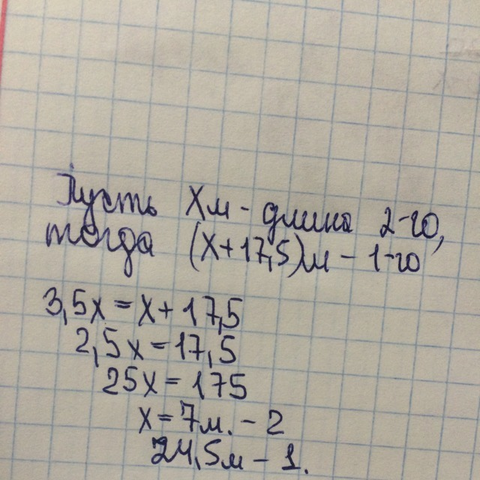 Пусть Xм - длина 2-го,
тогда (X+17,5)м - 1-го
3,5x = x + 17,5
2,5x = 17,5
25x = 175
x = 7м. - 2
24,5м - 1.